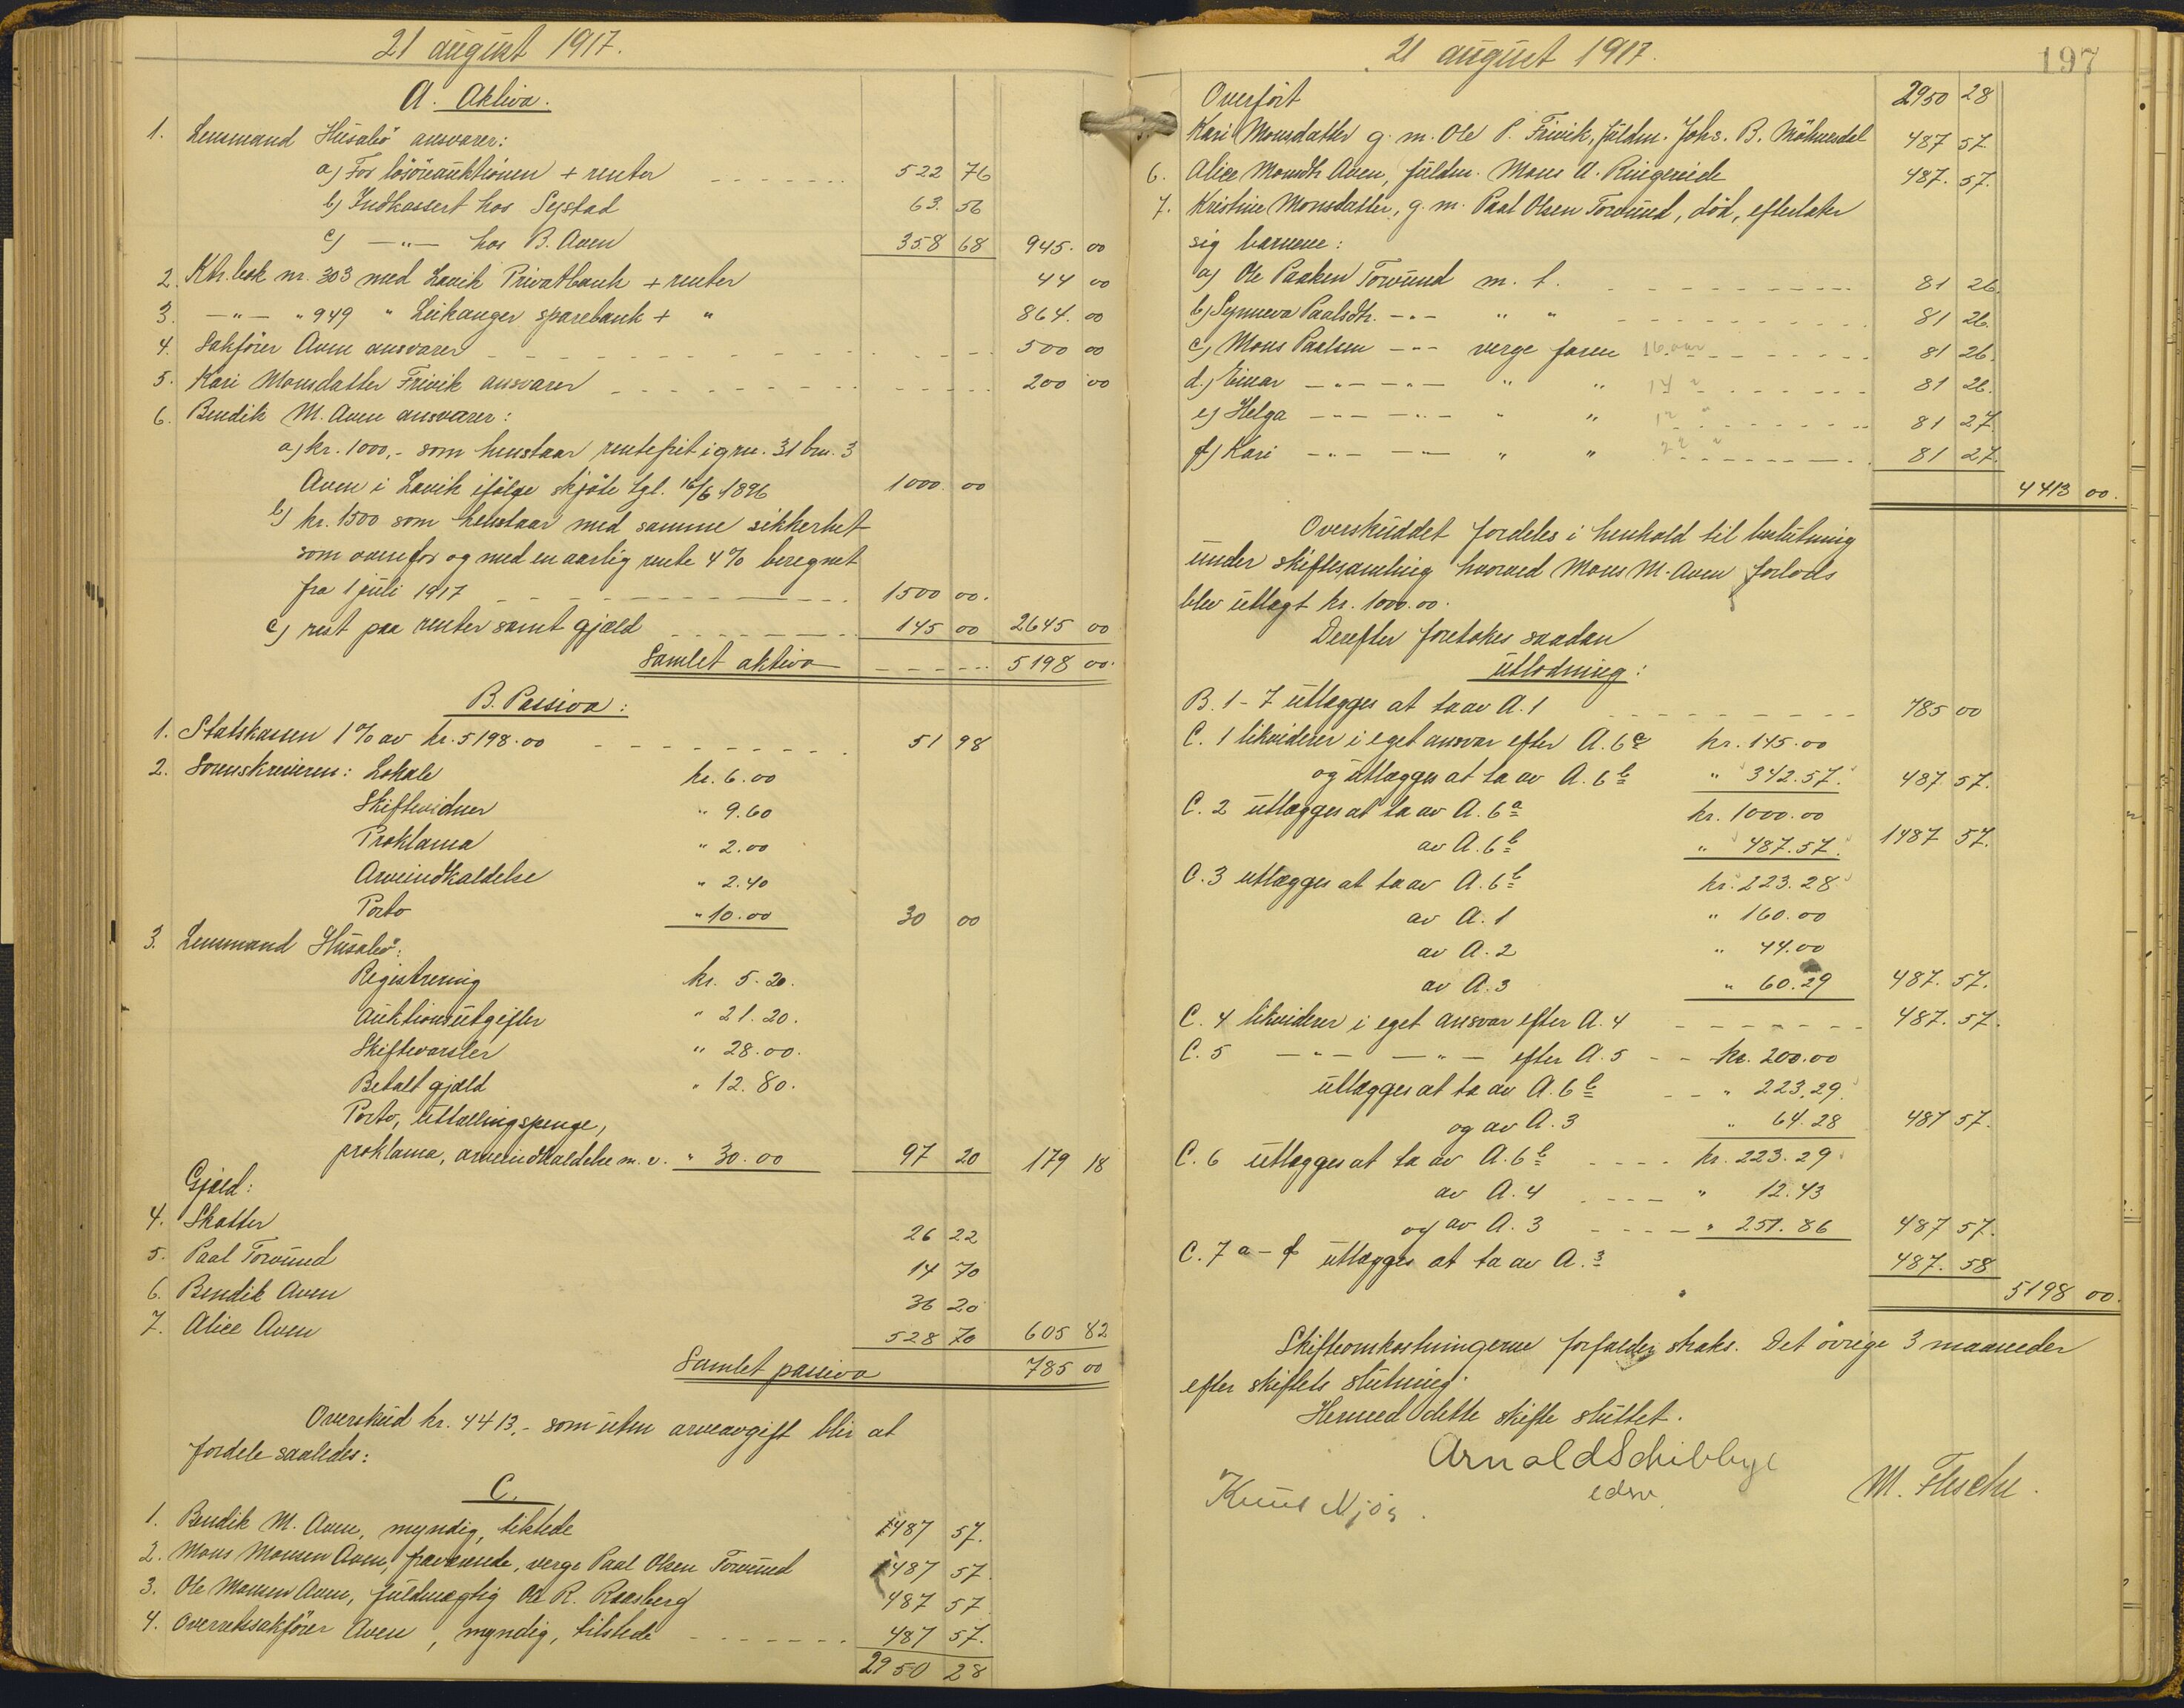 21 august 1917.
A. Aktiva.
1. Lensmand Husabö ansvarer:
a) For lösöreauktionen + renter 522 76
b) Indkassert hos Systad 63. 56
c) —"— hos B. Aven 358 68 945. 00
2. Ktr. bok nr. 303 med Lavik Privatbank + renter 44 00
3. —"— " 949 " Leikanger sparebank + " 864. 00
4. Sakförer Aven ansvarer 500 00
5. Kari Monsdatter Frivik ansvarer 200 00
6. Bendik M. Aven ansvarer:
a) kr. 1000,- som henstaar rentefrit i gnr. 31 bnr. 3
Aven i Lavik ifölge skjöte tgl. 16/6 1896 1000. 00
b) kr. 1500 som henstaar med samme sikkerhet
som ovenfor og med en aarlig rente 4% beregnet
fra 1 juli 1917 1500 00.
c) rest paa renter samt gjæld 145 00 2645 00
Samlet aktiva 5198 00.
B. Passiva:
1. Statskassen 1% av kr. 5198.00 51 98
2. Sorenskriveren: Lokale kr. 6.00
Skiftevidner " 9.60
Proklama " 2.00
Arveindkaldelse " 2.40
Porto " 10.00 30 00
3. Lensmand Husabö:
Registrering kr. 5.20.
Auktionsutgifter " 21.20.
Skiftevarsler " 28.00.
Betalt gjæld " 12.80.
Porto, uttællingspenge,
proklama, arveindkaldelse m.v. " 30.00 97 20 179 18
Gjæld:
4. Skatter 26 22
5. Paal Torvund 14 70
6. Bendik Aven 36 20
7. Alice Aven 528 70 605 82
Samlet passiva 785 00
Overskud kr. 4413,- som uten arveavgift blir at
fordele saaledes:
C.
1. Bendik M. Aven, myndig, tilstede 487 57.
2. Mons Monsen Aven, fraværende, verge Paal Olsen Torvund 1487 57.
3. Ole Monsen Aven, fuldmægtig Ole R. Raasberg 487 57
4. Overretssakförer Aven, myndig, tilstede 487 57.
2950 28
21 august 1917.
197
Overfört 2950 28
Kari Monsdatter g. m. Ole P. Frivik, fuldm. Johs. B. 487 57.
6. Alice Monsdtr Aven, fuldm. Mons A. Ringereide 487. 57.
7. Kristine Monsdatter, g. m. Paal Olsen Torvund, död, efterlater
sig barnene:
a) Ole Paalsen Torvund m. t. 81 26.
b) Synneva Paalsdtr. -"- " " 81 26.
c) Mons Paalsen -"- verge faren 16 aar 81 26.
d.) Einar -"- -"- " " 14 " 81 26.
e) Helga -"- -"- " " 12 " 81 27.
f) Kari -"- -"- " " 81 27.
4413 00.
Overskuddet fordeles i henhold til beslutning
under skiftesamling hvorved Mons M. Aven forlods
blev utlagt kr. 1000.00.
Derefter foretokes saadan
utlodning:
B. 1-7 utlægges at ta av A. 1 785 00
C. 1 likviderer i eget ansvar efter A. 6 c kr. 145.00
og utlægges at ta av A. 6 b " 342.57. 487 57.
C. 2 utlægges at ta av A. 6 a kr. 1000.00
av A. 6 b " 487.57. 1487 57.
C. 3 utlægges at ta av A. 6 b kr. 223.28
av A. 1 " 160.00
av A. 2 " 44.00
av A. 3 " 60.29 487. 57.
C. 4 likviderer i eget ansvar efter A. 4 487. 57.
C. 5 —"— —"— efter A. 5 kr. 200.00
utlægges at ta av A. 6 b " 223.29.
og av A. 3 " 64.28 487 57.
C. 6 utlægges at ta av A. 6 b kr. 223.29
av A. 4 " 12.43
og av A. 3 " 251.86 487 57.
C. 7 a-f utlægges at ta av A. 3 487. 58
5198 00.
Skifteomkostningerne forfalder straks. Det övrige 3 maaneder
efter skiftets slutning.
Hermed dette skifte sluttet.
Arnold Schibbye
edsv.
Knut Njös.